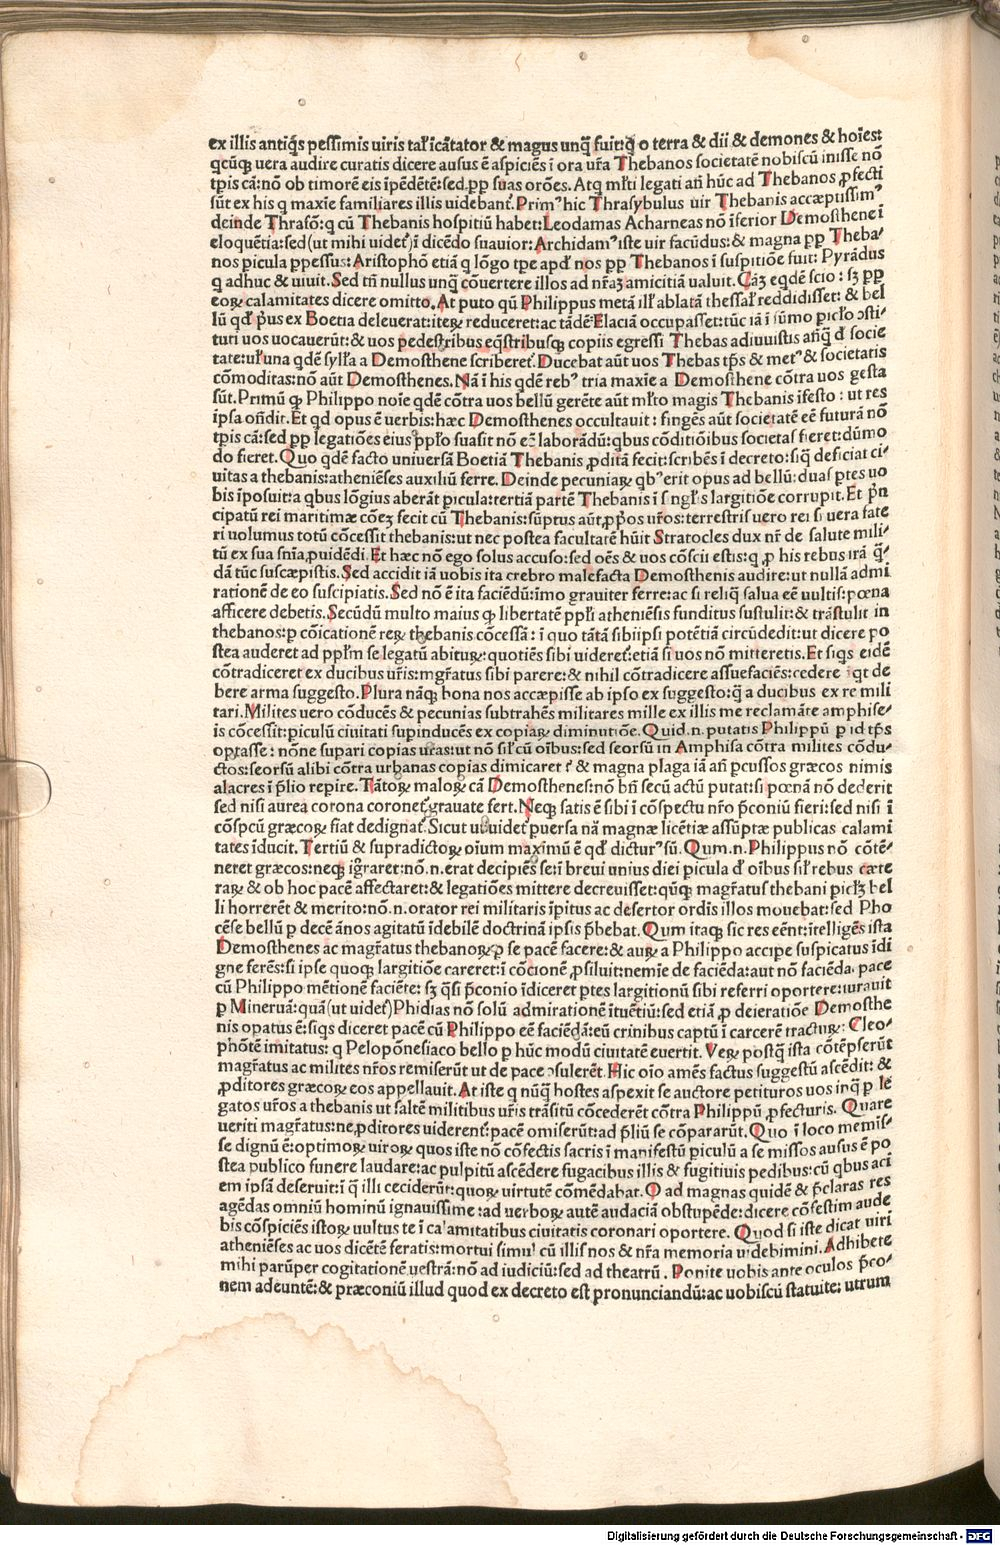 ex illis antiq̄s pessimis uiris tal' icātator & magus unq̄ fuit: q̄ o terra & dii & demones & hoīest
qcūq; uera audire curatis dicere ausus ē aspiciēs ī ora ur̄a Thebanos societatē nobiscū inisse nō
tp̄is cā: nō ob timorē eis īpēdētē: sed pp̄ suas orōes. Atq; ml'ti legati an̄ hūc ad Thebanos ꝓfecti
sūt ex his q maxīe familiares illis uidebant'. Primꝰ hic Thrasybulus uir Thebanis accæptissimꝰ
deinde Thrasō: q cū Thebanis hospitiū habet: Leodamas Acharneas nō īferior Demosthene ī
eloquētia: sed (ut mihi uidet') ī dicēdo suauior: Archidamꝰ iste uir facūdus: & magna pp̄ Theba⸗
nos picula ppessus: Aristophō etiā q lōgo tpe apd' nos pp̄ Thebanos ī suspitiōe fuit: Pyrādus
q adhuc & uiuit. Sed tn̄ nullus unq̄ cōuertere illos ad nr̄aȝ amicitiā ualuit. Cāȝ eqdē scio: sȝ pp̄
eoꝝ calamitates dicere omitto. At puto qū Philippus metā ill' ablatā thessal' reddidisset: & bel
lū qd' p̄us ex Boetia deleuerat: iteꝝ reduceret: ac tādē Elaciā occupasset: tūc iā ī sūmo picl'o ↄsti⸗
tuti uos uocauerūt: & uos pedestribus eq̄stribusq; copiis egressi Thebas adiuuistis anq̄ d' socie
tate: ul' una qdē syll'a a Demosthene scriberet'. Ducebat aūt uos Thebas tp̄s & metꝰ & societatis
cōmoditas: nō aūt Demosthenes. Nā ī his qdē rebꝰ tria maxīe a Demosthene cōtra uos gesta
sūt. Primū ꝙ Philippo noīe qdē cōtra uos bellū gerēte aūt ml'to magis Thebanis īfesto: ut res
ipsa on̄dit. Et qd opus ē uerbis: hæc Demosthenes occultauit: fingēs aūt societatē eē futurā nō
tp̄is cā: sed pp̄ legatiōes eius ppl'o suasit nō eē laborādū: qbus cōditiōibus societas fieret: dūmo
do fieret. Quo qdē facto uniuersā Boetiā Thebanis ꝓditā fecit: scribēs ī decreto: siq̄ deficiat ci⸗
uitas a thebanis: atheniēses auxiliū ferre. Deinde pecuniaꝝ qbꝰ erit opus ad bellū: duas ptes uo
bis īposuit: a qbus lōgius aberāt picula: tertiā partē Thebanis ī sīngl's largitiōe corrupit. Et p̄n
cipatū rei maritimæ cōeȝ fecit cū Thebanis: sūptus aūt ꝓp̄os ur̄os: terrestris uero rei si uera fate
ri uolumus totū cōcessit thebanis: ut nec postea facultatē hūit Stratocles dux nr̄ de salute mili⸗
tū ex sua sn̄ia ꝓuidēdi. Et hæc nō ego solus accuso: sed oēs & uos cōscii estis: q ꝓ his rebus irā q̄⸗
dā tūc suscæpistis. Sed accidit iā uobis ita crebro malefacta Demosthenis audire: ut nullā admi
rationē de eo suscipiatis. Sed nō ē ita faciēdū: īmo grauiter ferre: ac si reliq̄ salua eē uultis: pœna
afficere debetis. Secūdū multo maius ꝙ libertatē ppl'i atheniēsis funditus sustulit: & trāstulit in
thebanos: p cōicationē reꝝ thebanis cōcessā: ī quo tātā sibiipsi potētiā circūdedit: ut dicere po
stea auderet ad ppl'm se legatū abituꝝ: quotiēs sibi uideret': etiā si uos nō mitteretis. Et siqs eidē
cōtradiceret ex ducibus ur̄is: mgr̄atus sibi parere: & nihil cōtradicere assuefaciēs: cedere igt' de
bere arma suggesto. Plura nāq; bona nos accæpisse ab ipso ex suggesto: q̄ a ducibus ex re mili
tari. Milites uero cōducēs & pecunias subtrahēs militares mille ex illis me reclamāte amphise⸗
is cōcessit: piculū ciuitati supinducēs ex copiaꝝ diminutiōe. Quid.n. putatis Philippū p id tp̄s
optasse: nōne supari copias ur̄as: ut nō sil'cū oībus: sed seorsū in Amphisa cōtra milites cōdu⸗
ctos: seorsū alibi cōtra urbanas copias dimicaret': & magna plaga iā an̄ pcussos græcos nimis
alacres ī p̄lio repire. Tātoꝝ maloꝝ cā Demosthenes: nō bn̄ secū actū putat: si pœnā nō dederit
sed nisi aurea corona coronet' grauate fert. Neq; satis ē sibi ī cōspectu nr̄o p̄coniū fieri: sed nisi ī
cōspcū græcoꝝ fiat dedignat'. Sicut ut uidet' puersa nā magnæ licētiæ assūptæ publicas calami
tates īducit. Tertiū & supradictoꝝ oium maximū ē qd' dicturꝰ sū. Qum.n. Philippus nō cōtē⸗
neret græcos: neq; igr̄aret: nō.n. erat decipiēs se: ī breui unius diei picula d' oībus sil' rebus cæte
raꝝ & ob hoc pacē affectaret: & legatiōes mittere decreuisset: qūq; magr̄atus thebani piclȝ bel
li horrerēt & merito: nō.n. orator rei militaris īpitus ac desertor ordīs illos mouebat: sed Pho
cēse bellū p decē ānos agitatū īdebilē doctrinā ipsis p̄bebat. Qum itaq; sic res eēnt: ītelligēs ista
Demosthenes ac magr̄atus thebanoꝝ ꝓ se pacē facere: & auꝝ a Philippo accipe suspicatus īdi
gne ferēs: si ipse quoq; largitiōe careret: ī cōcionē ꝓsiluit: nemīe de faciēda: aut nō faciēda pace
cū Philippo mētionē faciēte: sȝ q̄si p̄conio īdiceret ptes largitionū sibi referri oportere: iurauit
p Mineruā: quā (ut uidet') Phidias nō solū admirationē ītuētiū: sed etiā ꝓ deieratiōe Demosthe
nis opatus ē: siqs diceret pacē cū Philippo eē faciēdā: eū crinibus captū ī carcerē tractuꝝ: Cleo⸗
phōtē imitatus: q Pelopōnesiaco bello p hūc modū ciuitatē euertit. Veꝝ postq̄ ista cōtēpserūt
magr̄atus ac milites nr̄os remiserūt ut de pace ↄsulerēt. Hic oīo amēs factus suggestū ascēdit: &
ꝓditores græcoꝝ eos appellauit. At iste q nūq̄ hostes aspexit se auctore petituros uos inq̄ p le
gatos ur̄os a thebanis ut saltē militibus ur̄is trāsitū cōcederēt cōtra Philippū ꝓfecturis. Quare
ueriti magr̄atus: ne ꝓditores uiderent': pacē omiserūt: ad p̄liū se cōpararūt. Quo ī loco memis⸗
se dignū ē: optimoꝝ uiroꝝ quos iste nō cōfectis sacris ī manifestū piculū a se missos ausus ē po
stea publico funere laudare: ac pulpitū ascēdere fugacibus illis & fugitiuis pedibus: cū qbus aci
em ipsā deseruit: ī q̄ illi ceciderūt: quoꝝ uirtutē cōmēdabat. O ad magnas quidē & p̄claras res
agēdas omniū hominū ignauissime: ad uerboꝝ autē audaciā obstupēde: dicere cōfestim aude
bis cōspiciēs istoꝝ uultus te ī calamitatibus ciuitatis coronari oportere. Quod si iste dicat uiri
atheniēses ac uos dicētē feratis: mortui simul cū illis nos & nr̄a memoria uidebimini. Adhibete
mihi parūper cogitationē uestrā: nō ad iudiciū: sed ad theatrū. Ponite uobis ante oculos p̄co⸗
nem adeuntē: & præconiū illud quod ex decreto est pronunciandū: ac uobiscū statuite: utrum
Digitalisierung gefördert durch die Deutsche Forschungsgemeinschaft - DFG